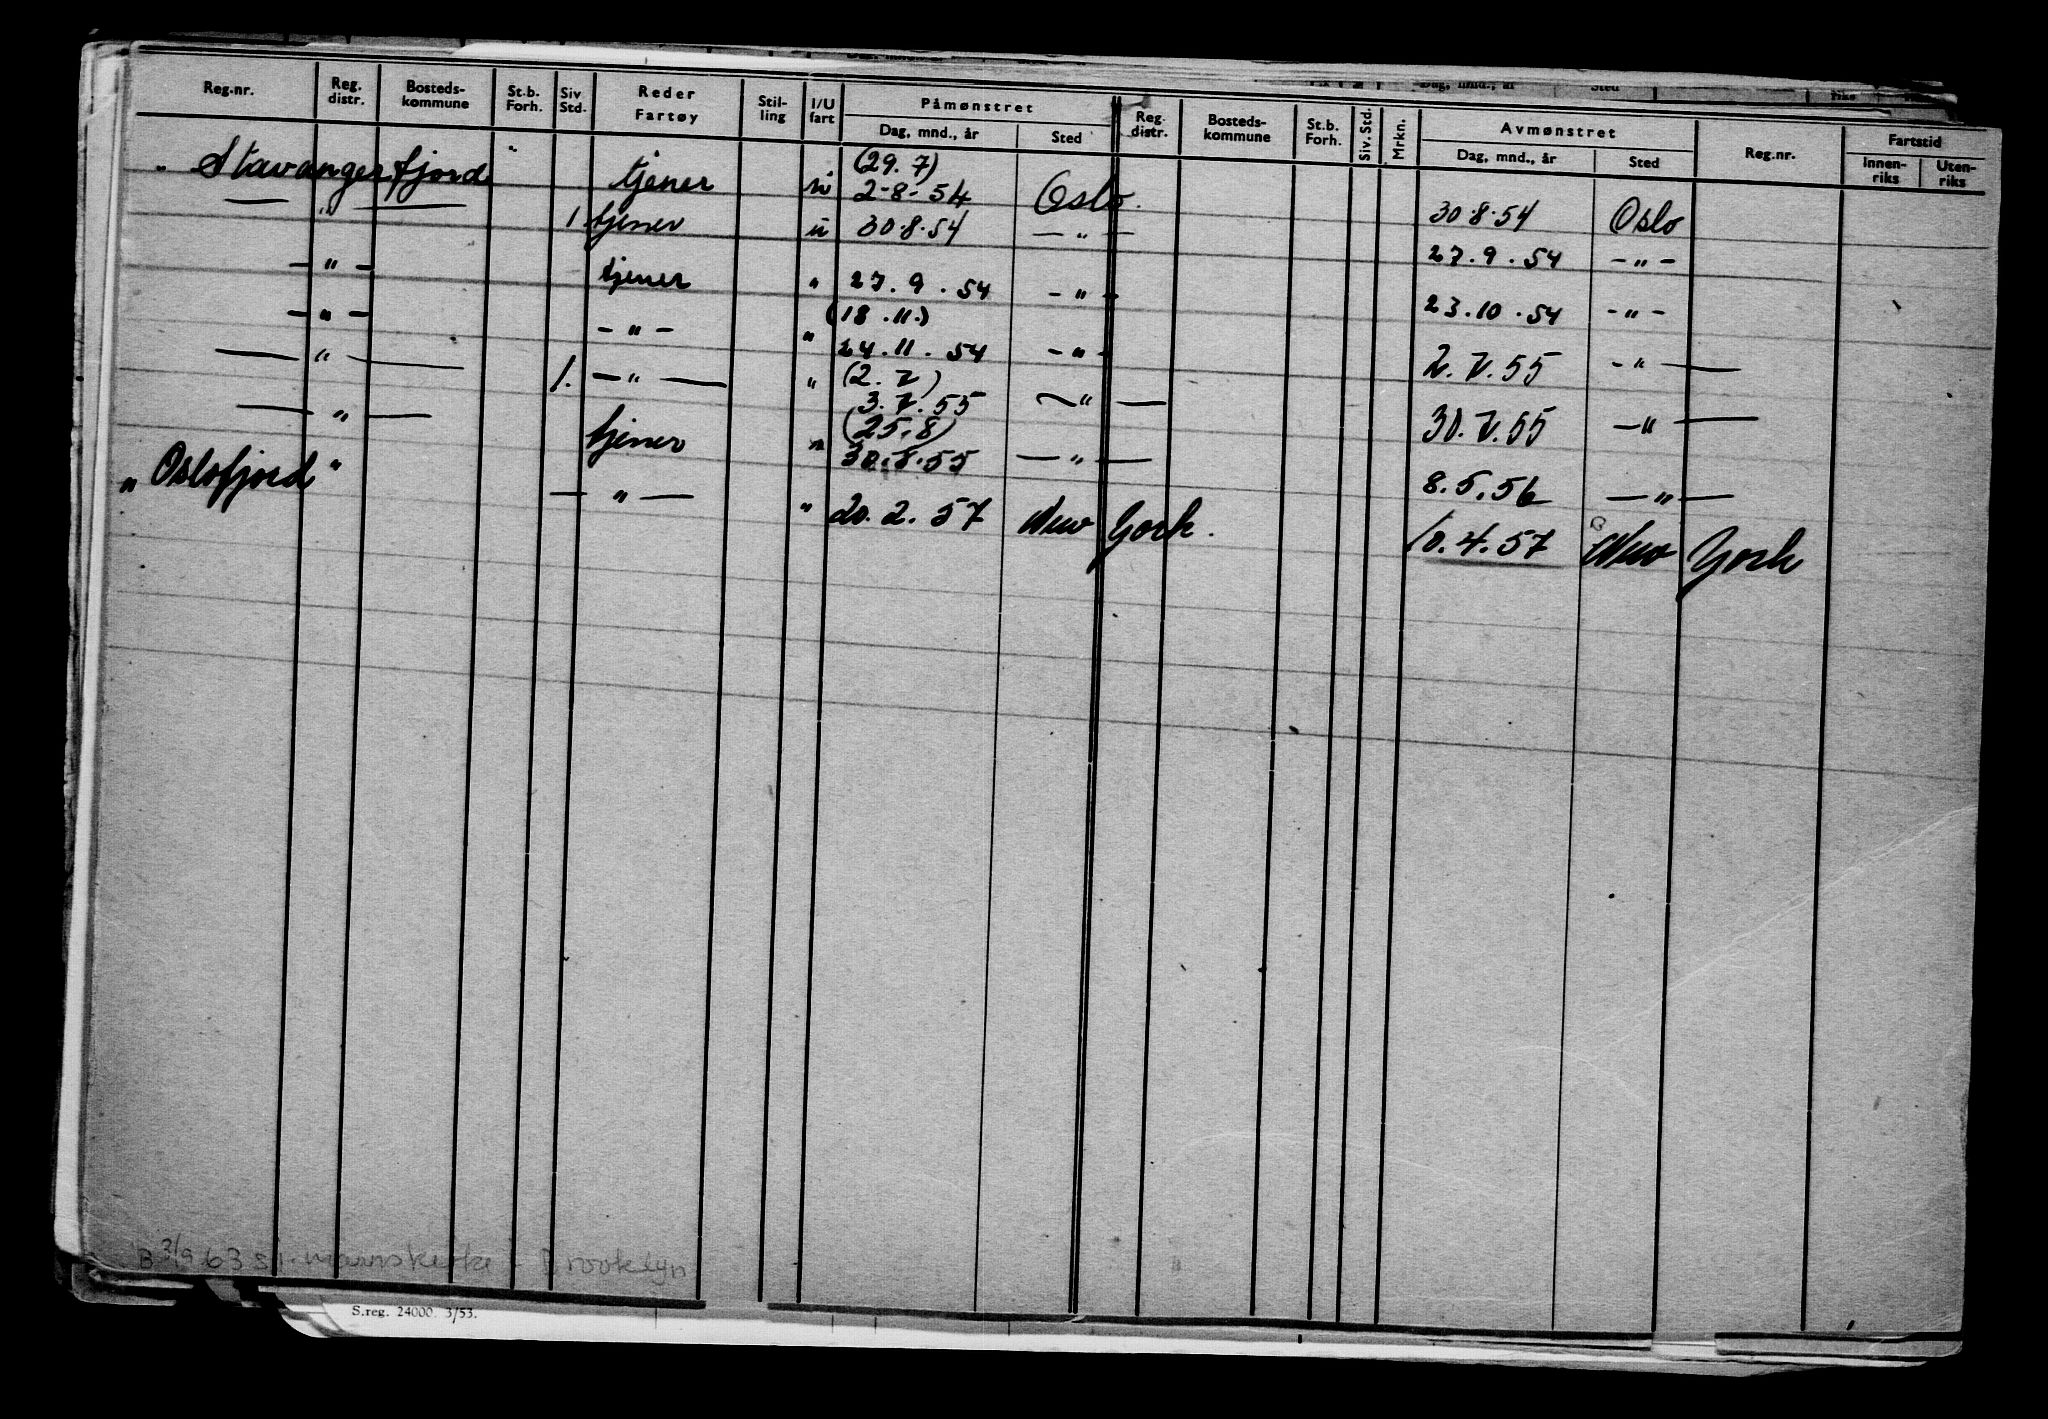 Reg.nr. Reg. distr. Bosteds-kommune St.b. Forh. Siv Std. Reder Fartøy Stil-ling I/U fart Påmønstret Dag, mnd., år Sted Reg. distr. Bosteds-kommune St.b. Forh. Siv. Std. Mrkn. Avmønstret Dag, mnd., år Sted Reg.nr. Fartstid Innen-riks Uten-riks
"Stavangerfjord" tjener u (29.7) 2-8-54 Oslo. 30.8.54 Oslo
— " — 1 tjener u 30.8.54 — " — 27.9.54 — " —
— " — tjener " 27.9.54 — " — 23.10.54 — " —
— " — — " — " (18.11.) 24.11.54 — " — 2.7.55 — " —
— " — 1. — " — " (2.7) 3.7.55 — " — 30.7.55 — " —
— " — tjener " (25.8) 30.8.55 — " — 8.5.56 — " —
"Oslofjord" — " — " 20.2.57 New York. 10.4.57 New York
B 3/9 63 sj. mannskirke - Brooklyn
S.reg. 24000. 3/53.